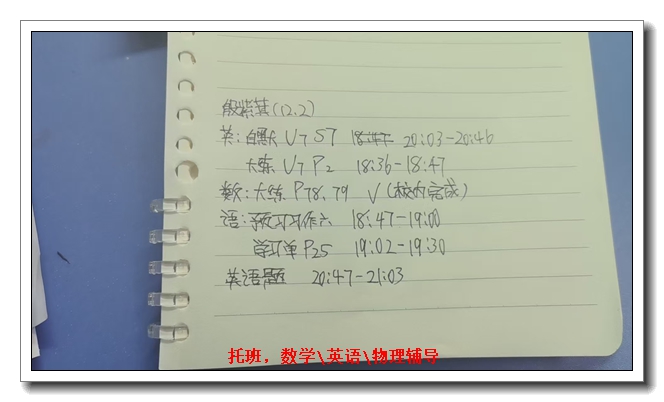 殷紫萁(12.2)
英:自默 U7 S7 18:47 20:03-20:46
大练 U7 P2 18:36-18:47
数:大练 P78、79 √(校内完成)
语:预习习作六 18:47-19:00
学习单 P25 19:02-19:30
英语题 20:47-21:03
托班，数学\英语\物理辅导